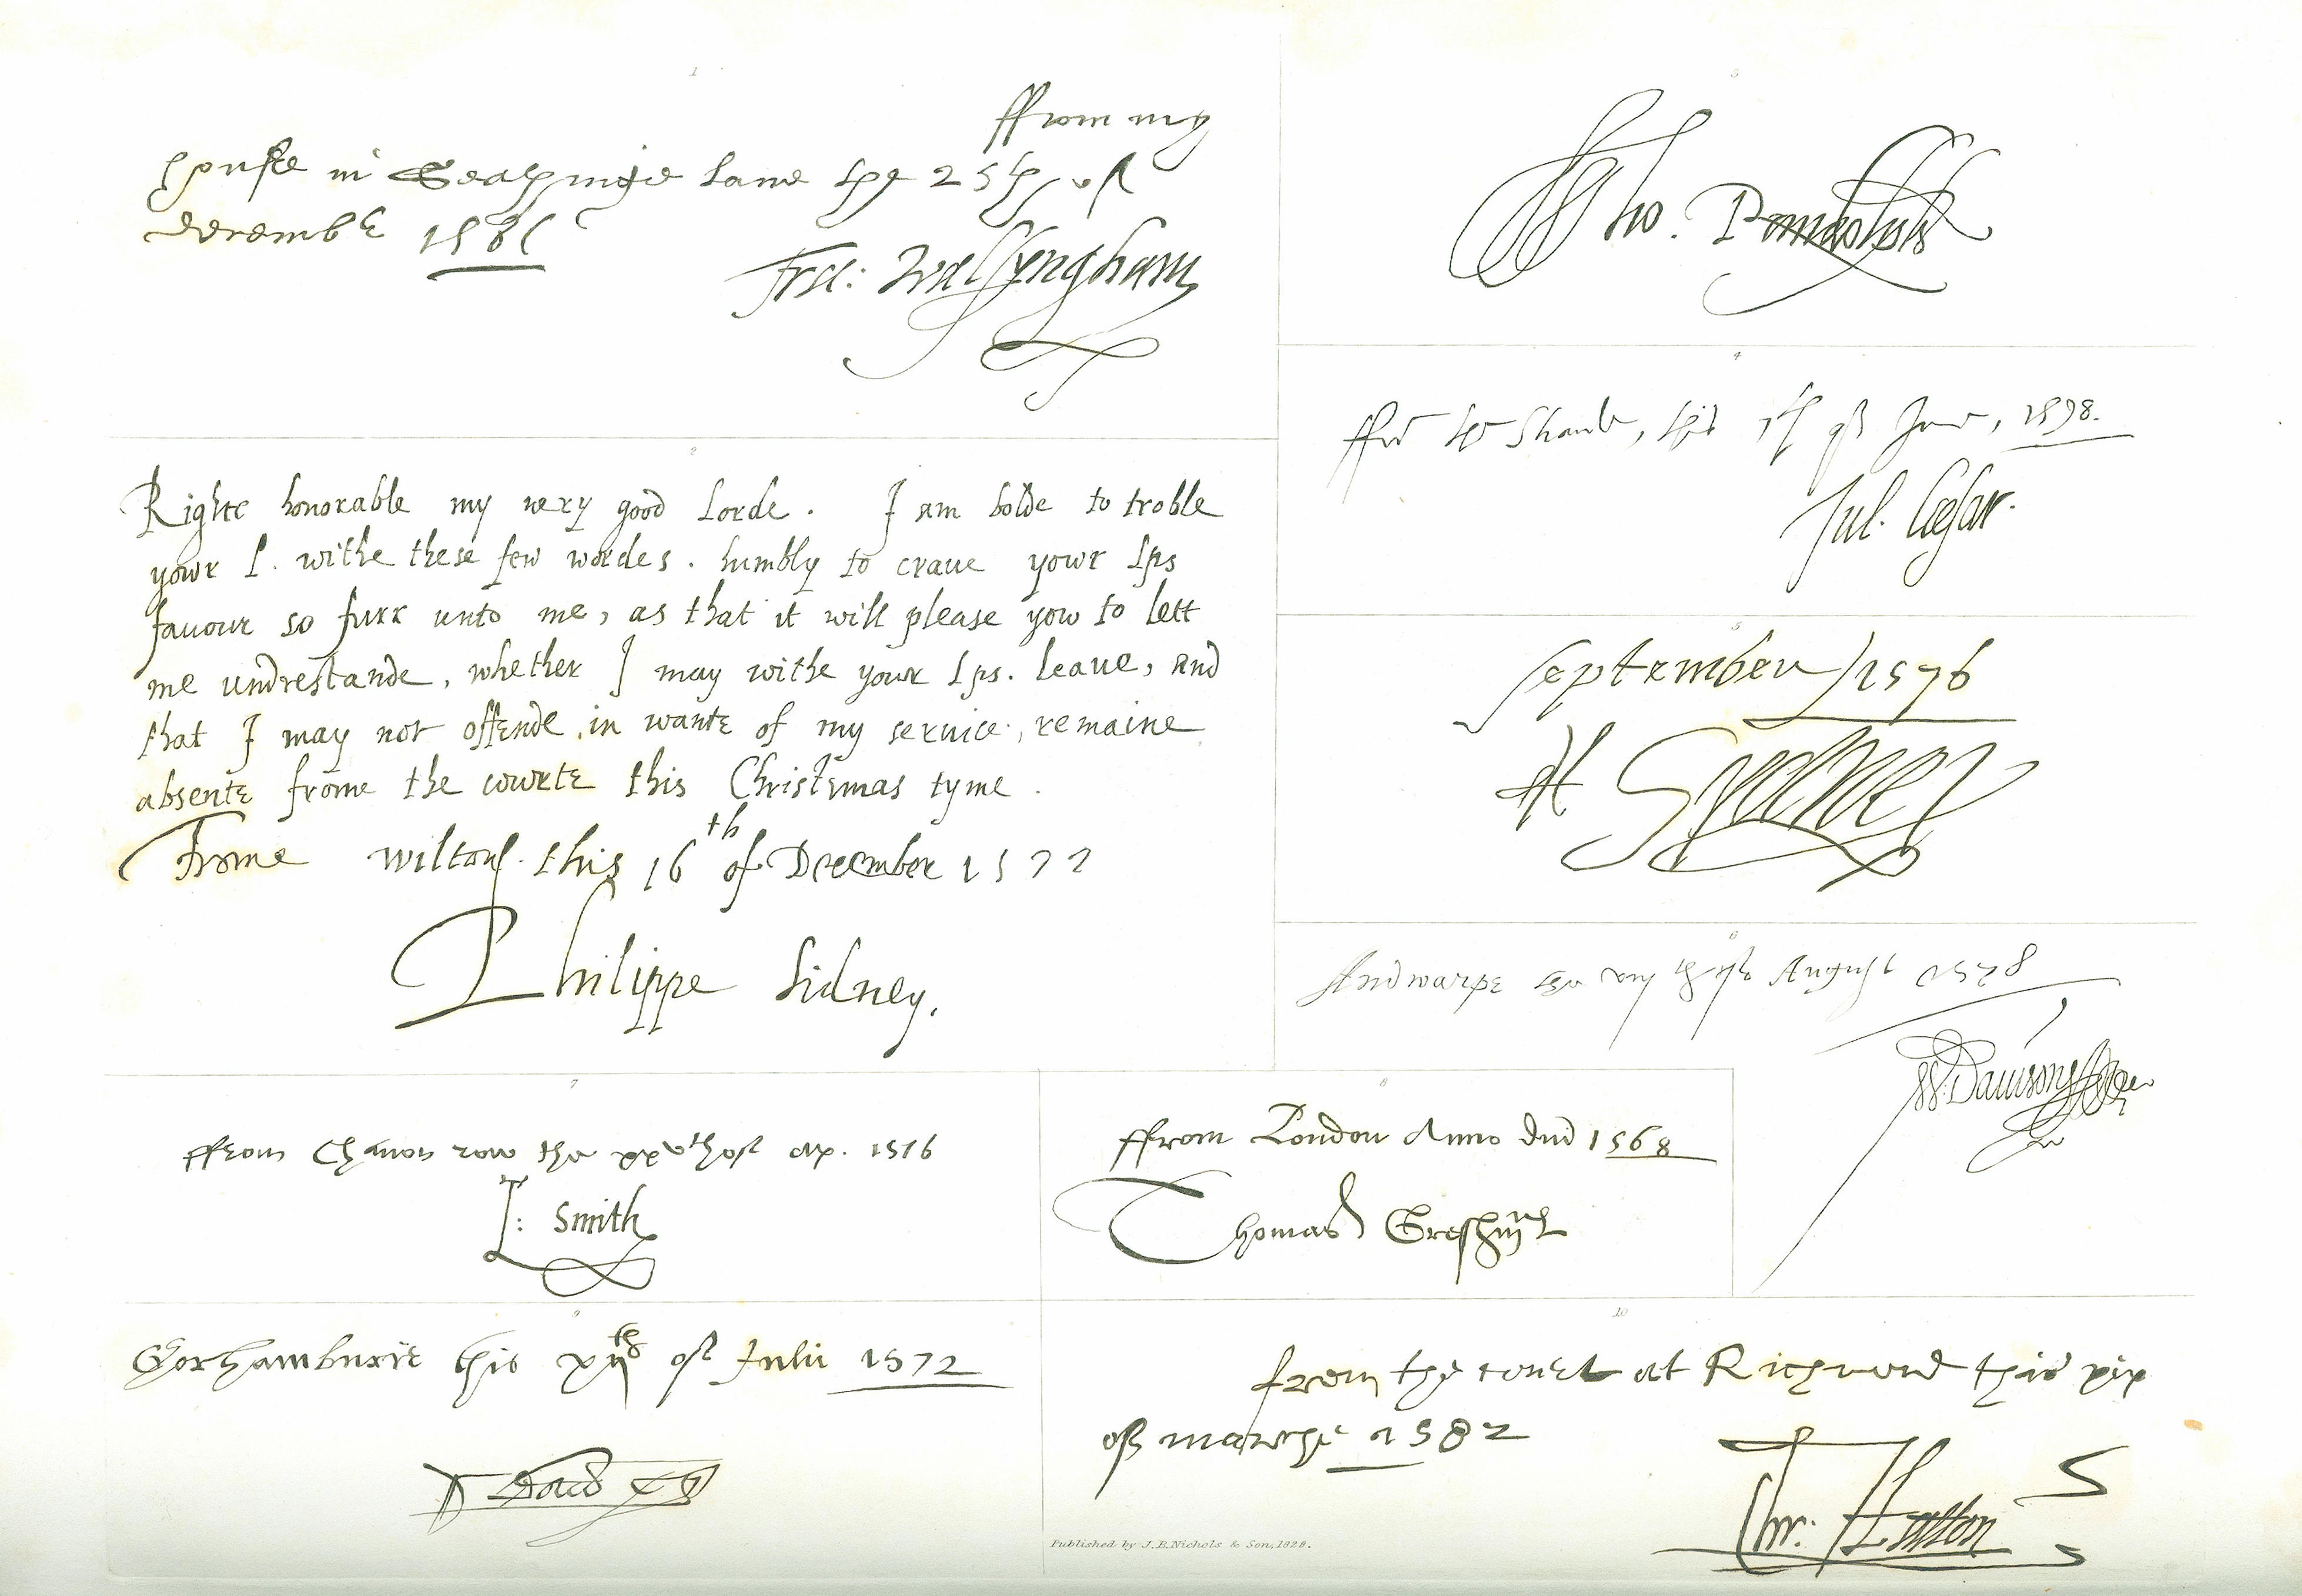 1
ffrom my
house in Seathinge Lane the 25th of
decembr 1581
Fra: Walsyngham
2
Righte honorable my very good Lorde. I am bolde to troble
yowr L. withe these few wordes. humbly to craue yowr Lps
fauour so furr unto me, as that it will please yow to lett
me undrestande, whether I may withe yowr Lps. leaue, and
that I may not offende in wante of my seruice, remaine
absente frome the courte this Christemas tyme.
Frome Wilton this 16th of December 1577
Philippe Sidney.
3
Tho. Randolphe
4
ffrō the Strande, this 7th of June, 1598.
Jul. Cæsar.
5
September 1576
H Sydney
6
Andwarpe the viijth of August 1578
W. Dauison
7
ffrom Chanon row the xxvth of ap. 1576
T: Smith
8
ffrom London Anno dnī 1568
Thomas Gresham
9
Gorhamburie this xijth of Julii 1572
N Bacō
10
from the court at Richmond this xix
of marche 1582
Chr: Hatton
Published by J.B.Nichols & Son, 1828.